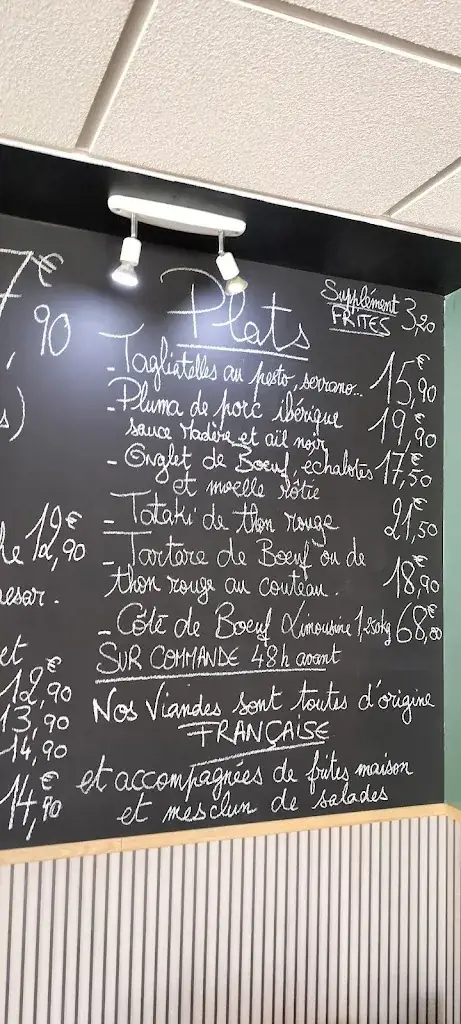 7€
,90
s)
he 12€,90
esar.
et
12€,90
13,90
14,90
14€,90
Plats
Supplément 3,20
FRITES
- Tagliatelles au pesto, serrano... 15€,90
- Pluma de porc ibérique 19€,90
sauce Madère et ail noir
- Onglet de Boeuf, echalotes 17€,50
et moelle rôtie
- Tataki de thon rouge 21€,50
- Tartare de Boeuf ou de
thon rouge au couteau. 18€,90
- Côte de Boeuf Limousine 68€,00
SUR COMMANDE 48h avant
Nos Viandes sont toutes d'origine
FRANÇAISE
et accompagnées de frites maison
et mesclun de salades